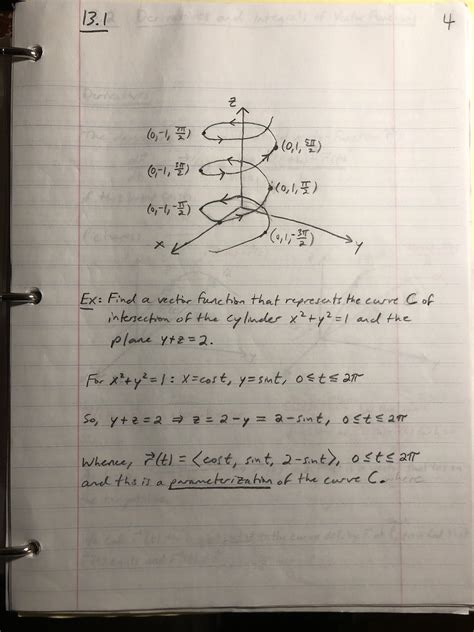 13.1
4
z
(0,-1, 7π/2)
(0,1, 5π/2)
(0,-1, 3π/2)
(0,1, π/2)
(0,-1, -π/2)
(0,1, -3π/2)
x
y
Ex: Find a vector function that represents the curve C of
intersection of the cylinder x²+y²=1 and the
plane y+z=2.
For x²+y²=1: x=cost, y=sint, 0≤t≤2π
So, y+z=2 ⇒ z=2-y = 2-sint, 0≤t≤2π
Whence, r⃗(t) = ⟨cost, sint, 2-sint⟩, 0≤t≤2π
and this is a parameterization of the curve C.